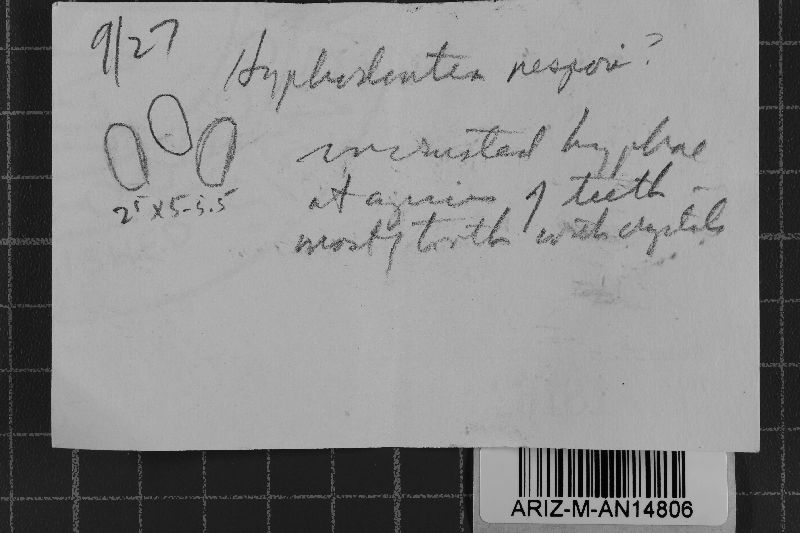 9/27
Hyphodontia nespori?
incrusted hyphae
at apices of teeth –
most of tooth with crystals
2⁵ x 5-5.5
ARIZ-M-AN14806